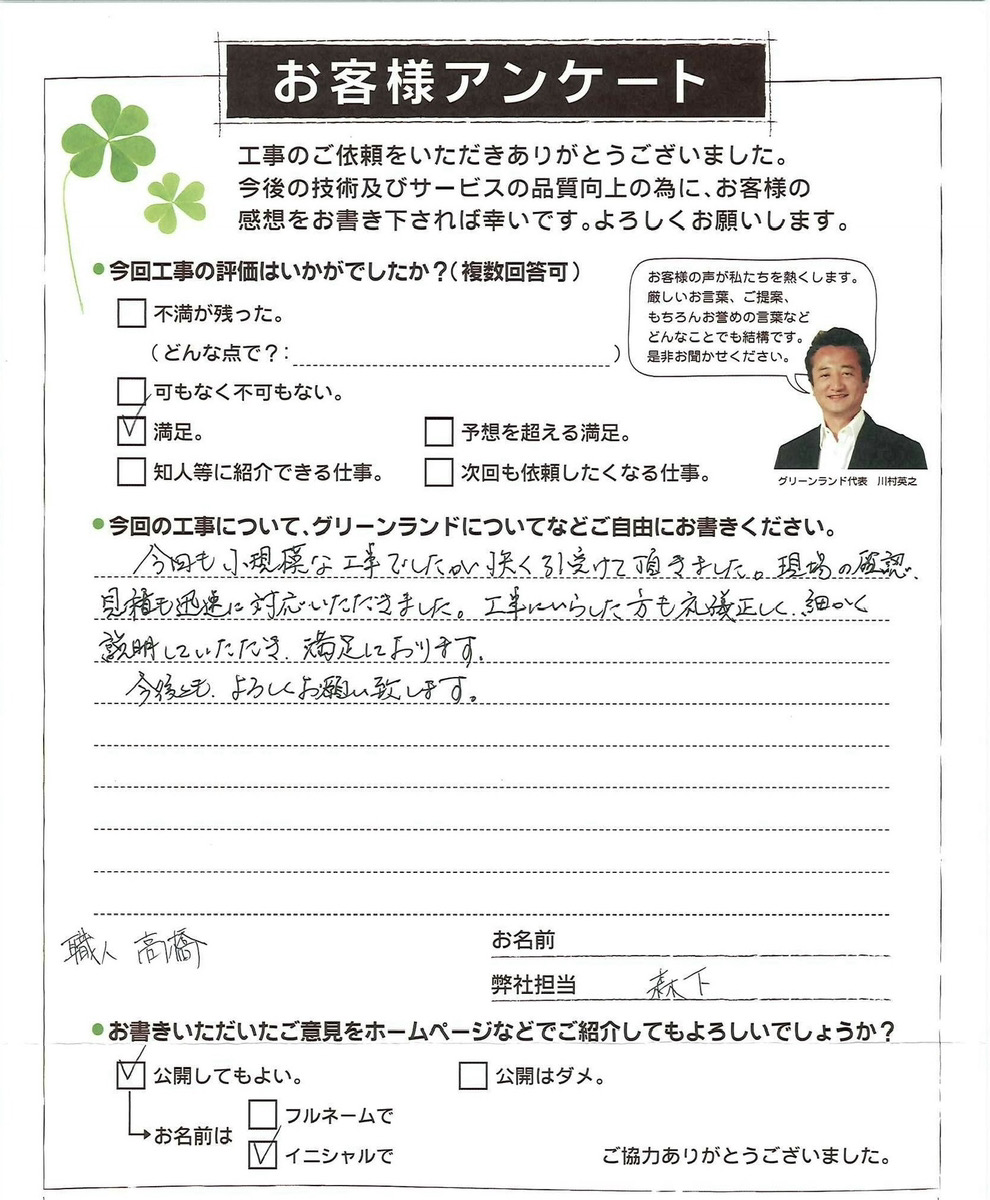 お客様アンケート
工事のご依頼をいただきありがとうございました。
今後の技術及びサービスの品質向上の為に、お客様の
感想をお書き下されば幸いです。よろしくお願いします。
●今回工事の評価はいかがでしたか?(複数回答可)
不満が残った。
(どんな点で?: )
可もなく不可もない。
満足。
予想を超える満足。
知人等に紹介できる仕事。
次回も依頼したくなる仕事。
お客様の声が私たちを熱くします。
厳しいお言葉、ご提案、
もちろんお誉めの言葉など
どんなことでも結構です。
是非お聞かせください。
グリーンランド代表 川村英之
●今回の工事について、グリーンランドについてなどご自由にお書きください。
今回も小規模な工事でしたが快く引受けて頂きました。現場の確認、
見積も迅速に対応いただきました。工事にいらした方も礼儀正しく、細かく
説明していただき、満足しております。
今後とも、よろしくお願い致します。
職人 高橋
お名前
弊社担当 森下
●お書きいただいたご意見をホームページなどでご紹介してもよろしいでしょうか?
公開してもよい。
公開はダメ。
お名前は
フルネームで
イニシャルで
ご協力ありがとうございました。